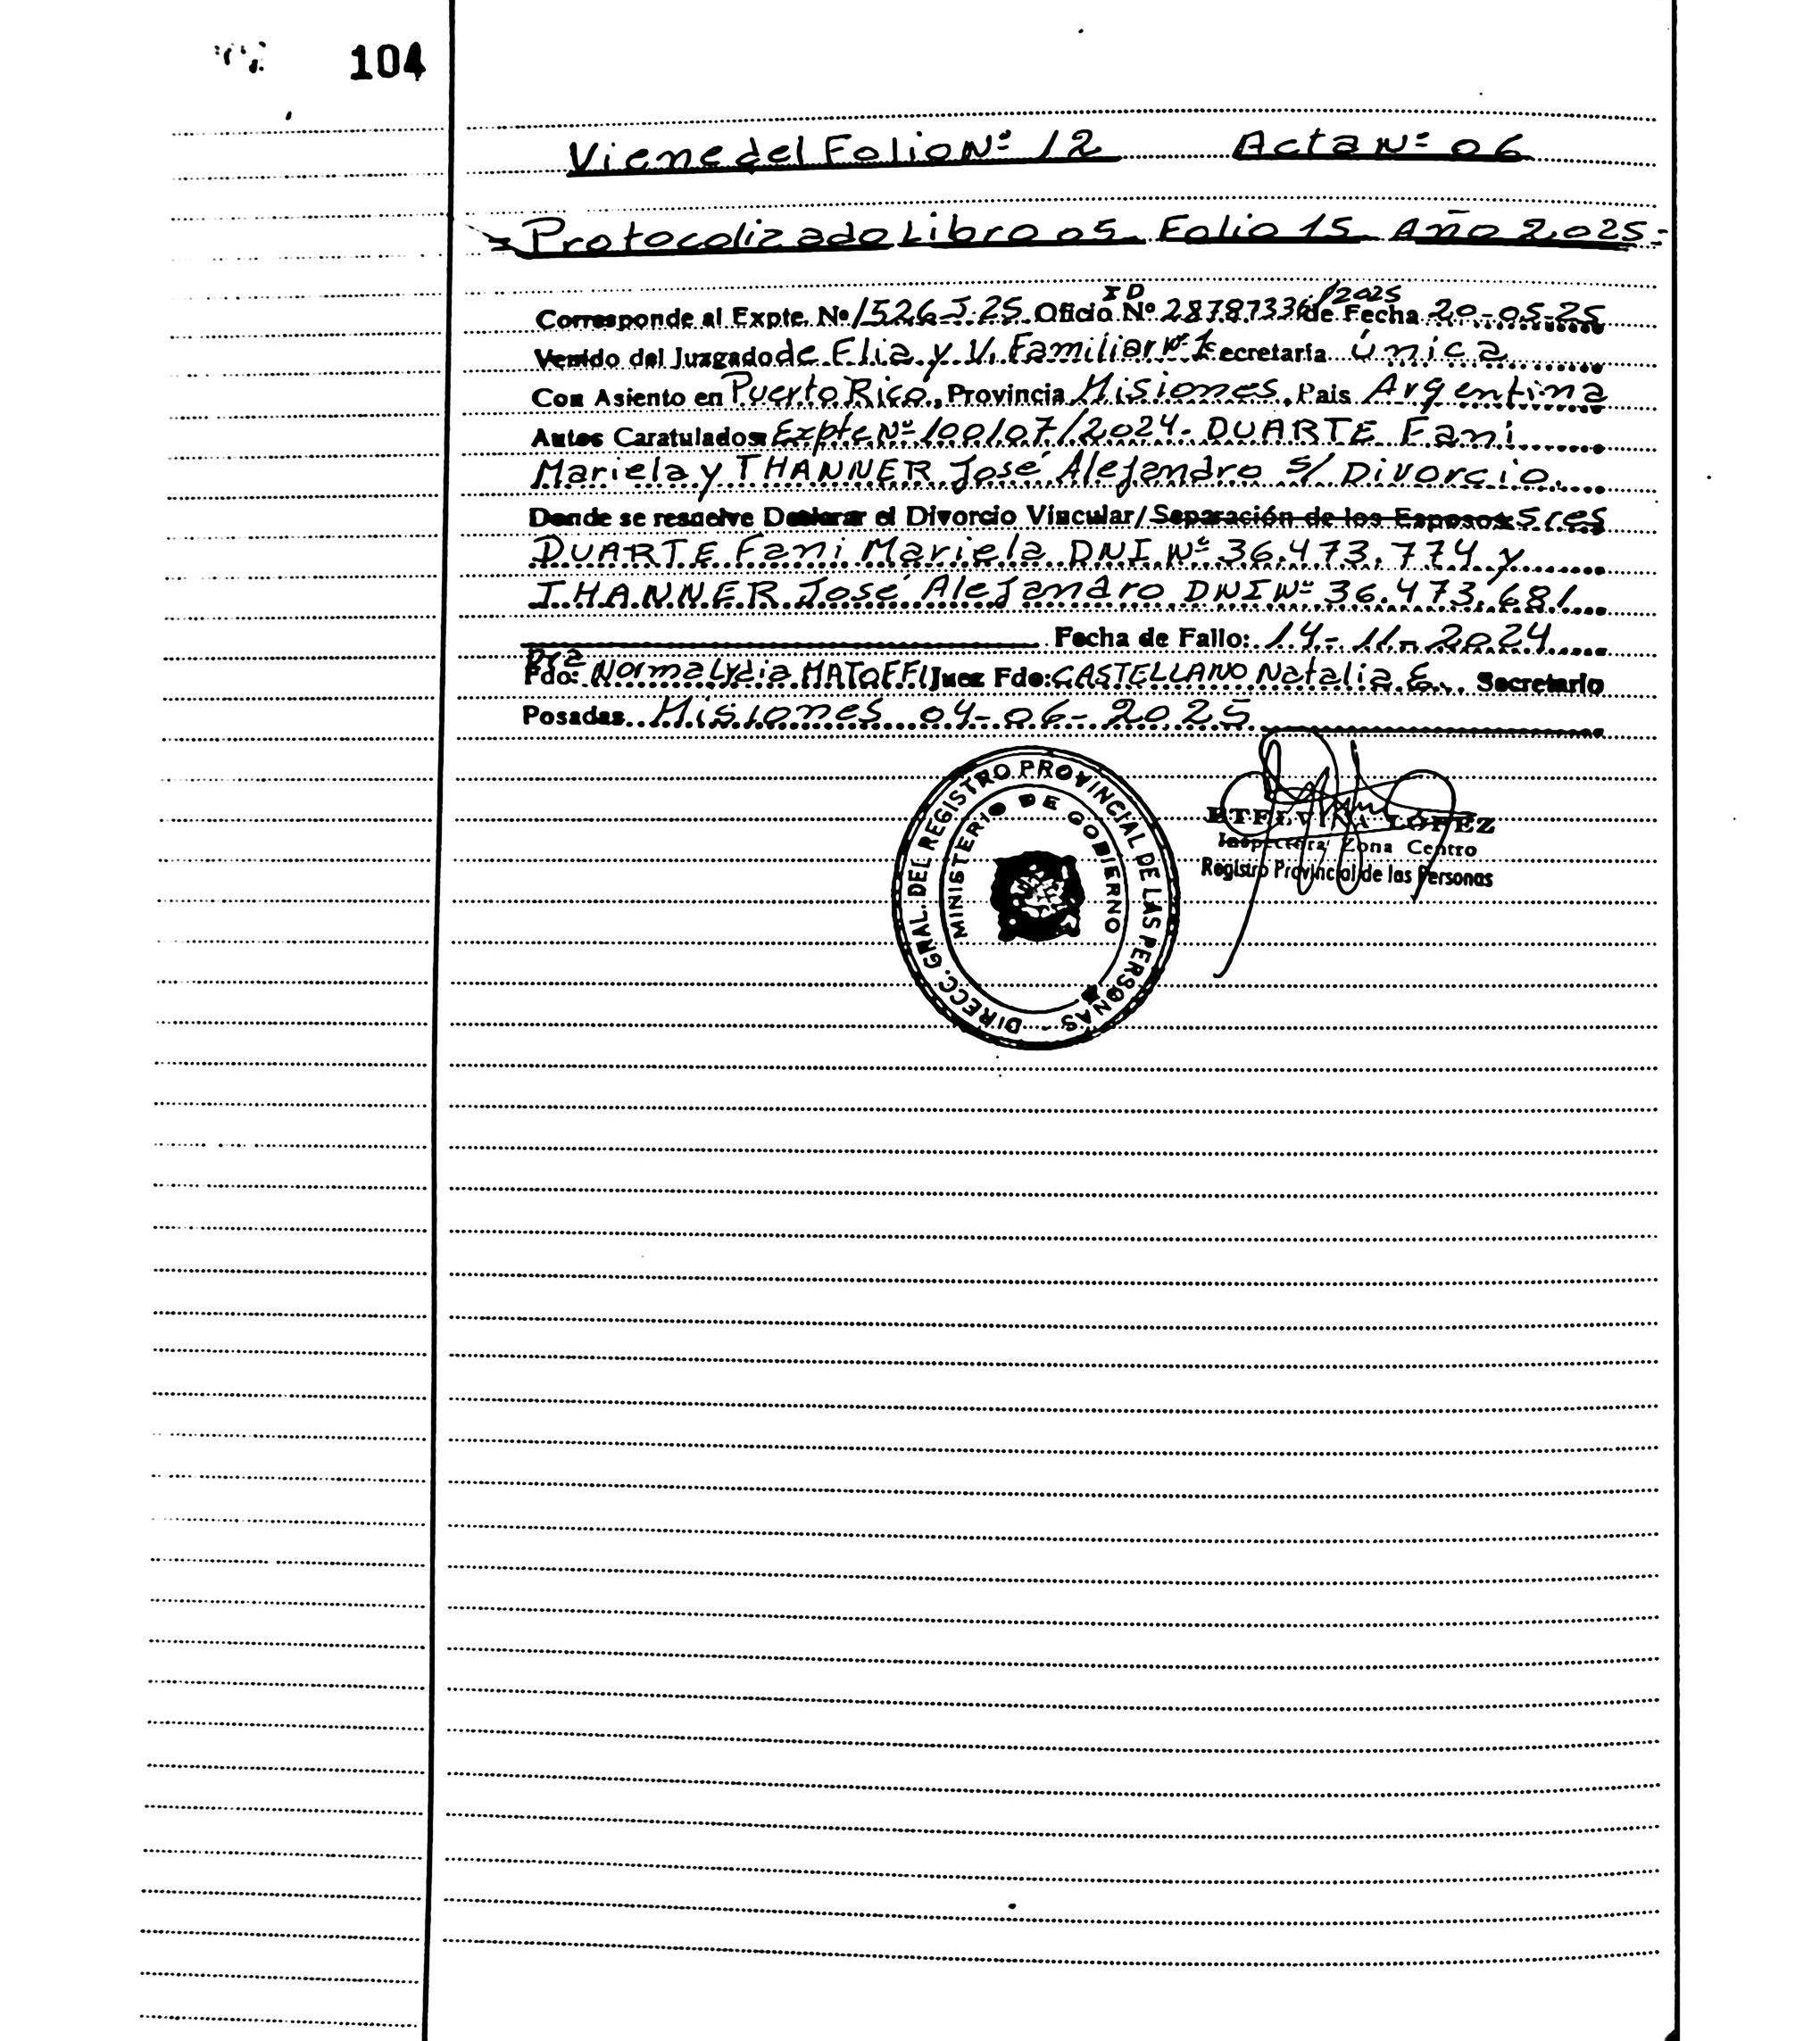 104
Viene del Folio Nº 12 Acta Nº 06
Protocolizado Libro 05 Folio 15 Año 2.025-
Corresponde al Expte. Nº 1526-J-25 Oficio ID Nº 28787336/2025 de Fecha 20-05-25
Venido del Juzgado de Flia y V. Familiar Nº 1 Secretaria única
Con Asiento en Puerto Rico, Provincia Misiones, Pais Argentina
Autos Caratulados: Expte Nº 100107/2024. DUARTE Fani
Mariela y THANNER José Alejandro S/ Divorcio.
Donde se resuelve Declarar el Divorcio Vincular/Separación de los Esposos: Sres
DUARTE Fani Mariela DNI Nº 36.473.774 y
THANNER José Alejandro DNI Nº 36.473.681
Fecha de Fallo: 14-11-2024
Dra
Fdo: Norma Lydia MATOFFI Juez Fdo: CASTELLANO Natalia E. Secretario
Posadas Misiones 04-06-2025
DIRECC. GRAL. DEL REGISTRO PROVINCIAL DE LAS PERSONAS -
MINISTERIO DE GOBIERNO
ETELVINA LOPEZ
Inspectora Zona Centro
Registro Provincial de las Personas